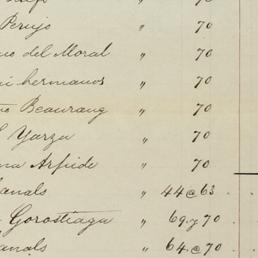 70
Perujo " 70
del Moral " 70
hermanos " 70
Beaurang " 70
Yarza " 70
Arpide " 70
Canals " 44@63
Gorostiaga " 69 y 70
Canals " 64@70